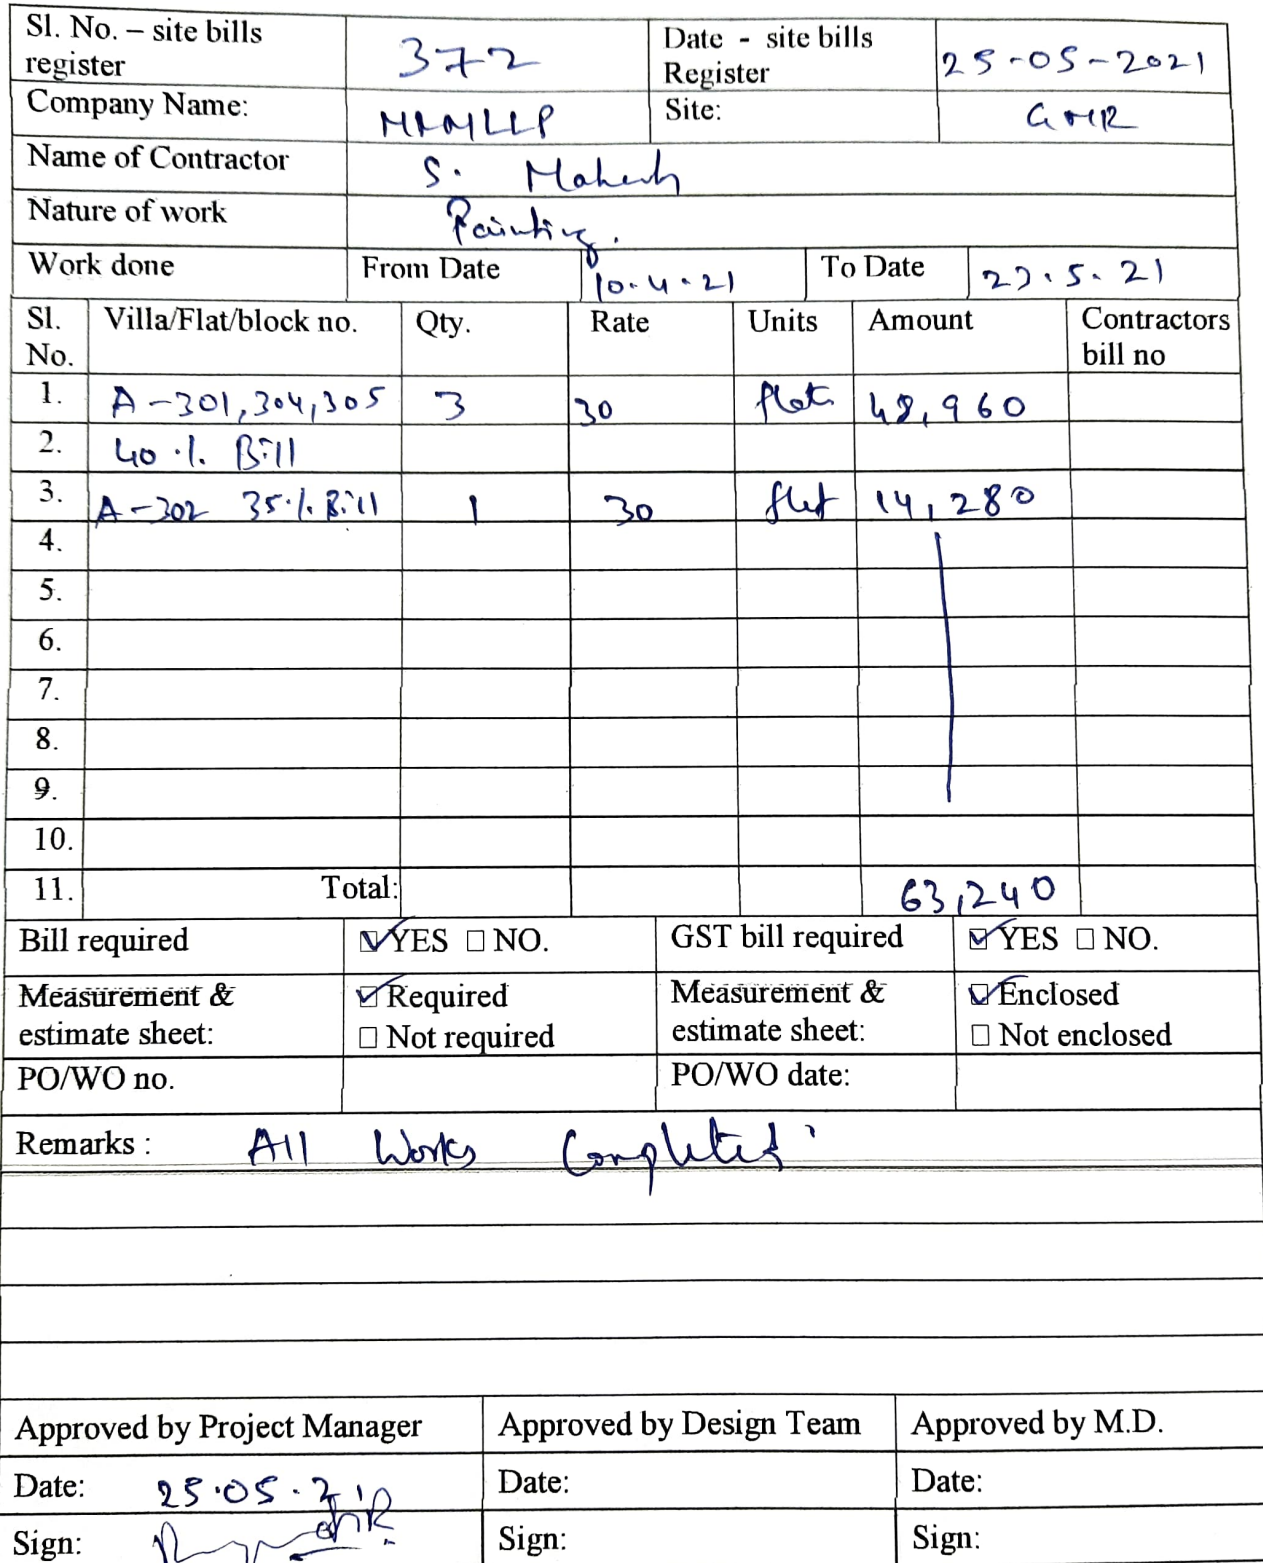 Sl. No. – site bills register 372 Date - site bills Register 25-05-2021
Company Name: MMMLLP Site: GMR
Name of Contractor S. Mahesh
Nature of work Painting.
Work done From Date 10.4.21 To Date 23.5.21
Sl. No. Villa/Flat/block no. Qty. Rate Units Amount Contractors bill no
1. A-301,304,305 3 30 flats 48,960
2. 40 % Bill
3. A-302 35% Bill 1 30 flat 14,280
4.
5.
6.
7.
8.
9.
10.
11. Total: 63,240
Bill required YES NO. GST bill required YES NO.
Measurement & estimate sheet: Required Measurement & estimate sheet: Enclosed
Not required Not enclosed
PO/WO no. PO/WO date:
Remarks : All Works Completed
Approved by Project Manager Approved by Design Team Approved by M.D.
Date: 25.05.21 Date: Date:
Sign: Sign: Sign: